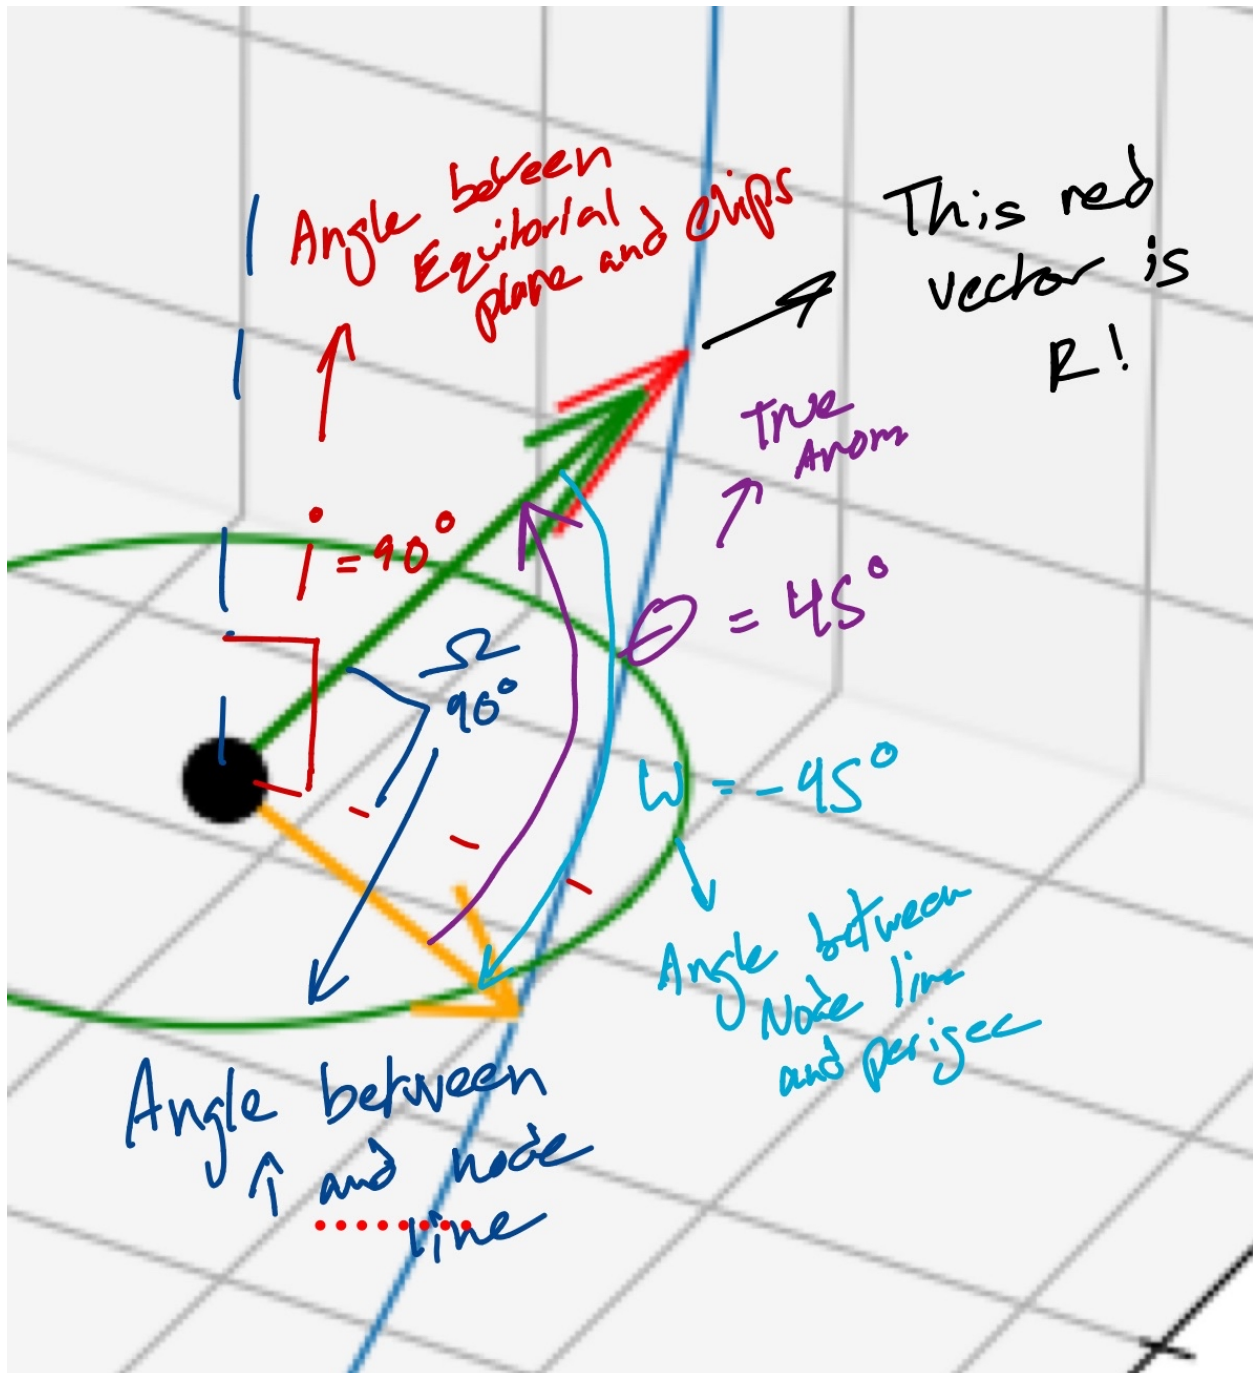 Angle between
Equitorial
plane and elips
This red
vector is
R!
True
Anom
i = 90°
Ω
90°
θ = 45°
W = -45°
Angle between
Node line
and perigee
Angle between
↑ and node
line